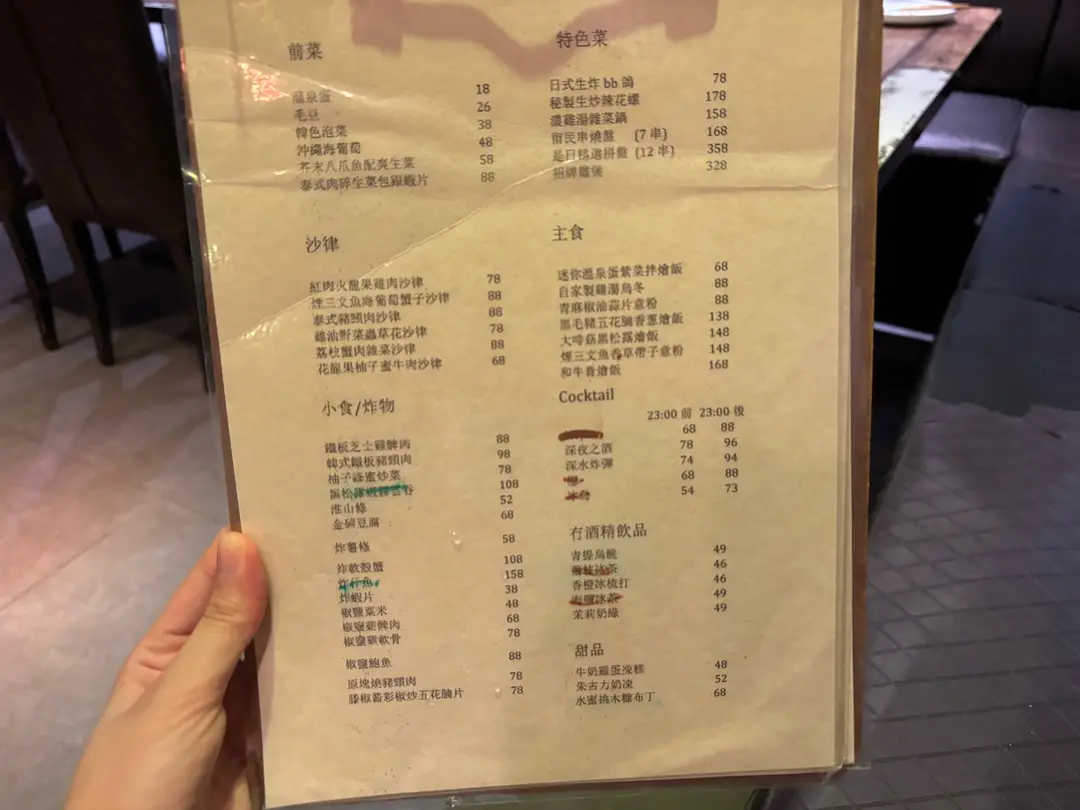 前菜
溫泉蛋 18
毛豆 26
韓色泡菜 38
沖繩海葡萄 48
芥末八爪魚配爽生菜 58
泰式肉碎生菜包跟蝦片 88
沙律
紅肉火龍果雞肉沙律 78
煙三文魚海葡萄蟹子沙律 88
泰式豬頸肉沙律 88
雞油野菜蟲草花沙律 78
荔枝蟹肉雜菜沙律 88
花龍果柚子蜜牛肉沙律 68
小食/炸物
鐵板芝士雞髀肉 88
韓式鐵板豬頸肉 98
柚子蜂蜜炒菜 78
黑松露蝦膠雲吞 108
淮山條 52
金磚豆腐 68
炸薯條 58
炸軟殼蟹 108
炸什魚 158
炸蝦片 38
椒鹽粟米 48
椒鹽雞髀肉 68
椒鹽雞軟骨 78
椒鹽鮑魚 88
原塊燒豬頸肉 78
藤椒醬彩椒炒五花腩片 78
特色菜
日式生炸 bb 鴿 78
秘製生炒辣花螺 178
濃雞湯雜菜鍋 158
留民串燒盤 (7 串) 168
是日精選拼盤 (12 串) 358
招牌雞煲 328
主食
迷你溫泉蛋紫菜拌燴飯 68
自家製雞湯烏冬 88
青麻椒油蒜片意粉 88
黑毛豬五花腩香蔥燴飯 138
大啡菇黑松露燴飯 148
煙三文魚香草帶子意粉 148
和牛膏燴飯 168
Cocktail
23:00 前 23:00 後
68 88
深夜之酒 78 96
深水炸彈 74 94
68 88
54 73
冇酒精飲品
青提烏龍 49
冰茶 46
香橙冰梳打 46
冰茶 49
茉莉奶綠 49
甜品
牛奶雞蛋凍糕 48
朱古力奶凍 52
水蜜挑木糠布丁 68